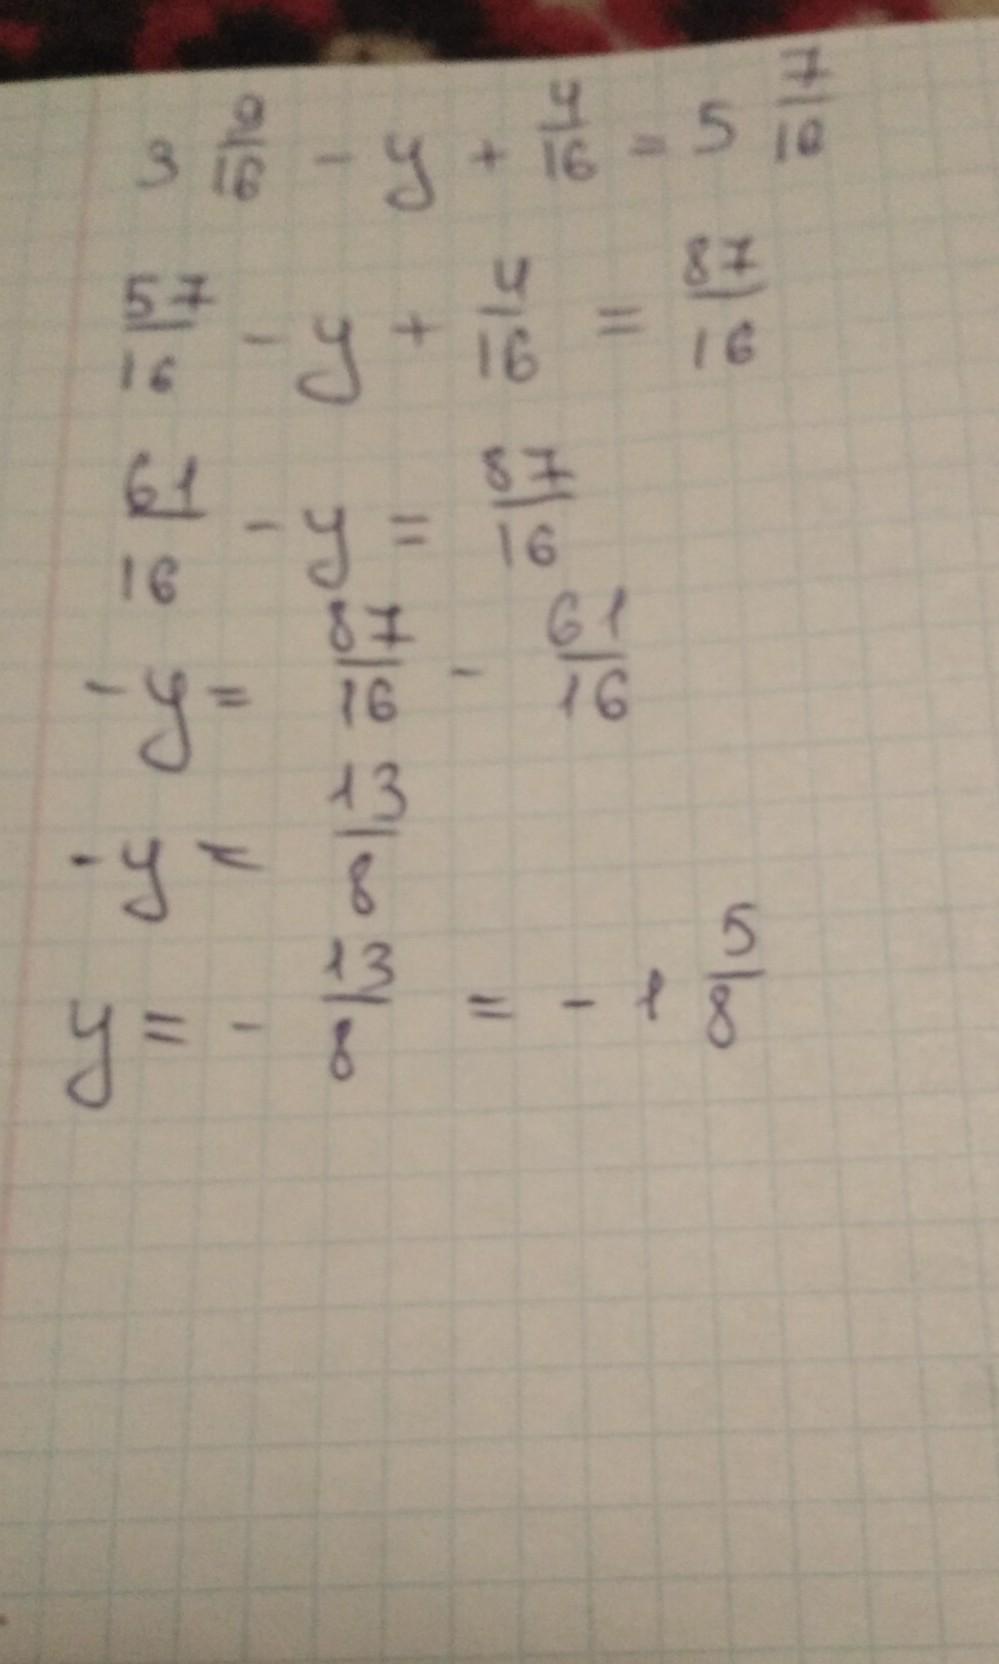 3 9/16 - y + 4/16 = 5 7/16
57/16 - y + 4/16 = 87/16
61/16 - y = 87/16
-y = 87/16 - 61/16
-y = 13/8
y = - 13/8 = - 1 5/8